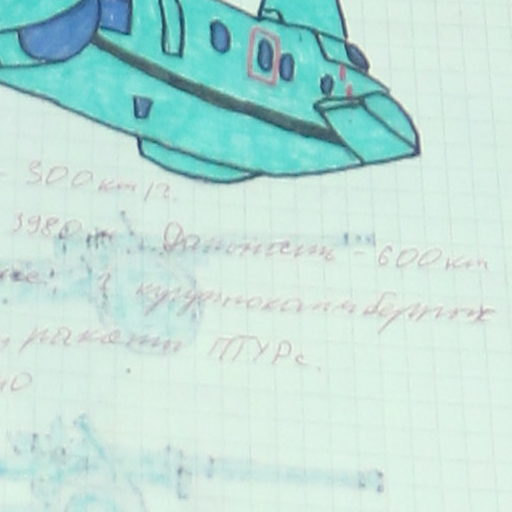 - 300 км/г.
3980 м. Дальность - 600 км
4 крупнокалиберных
ракеты ПТУРс.